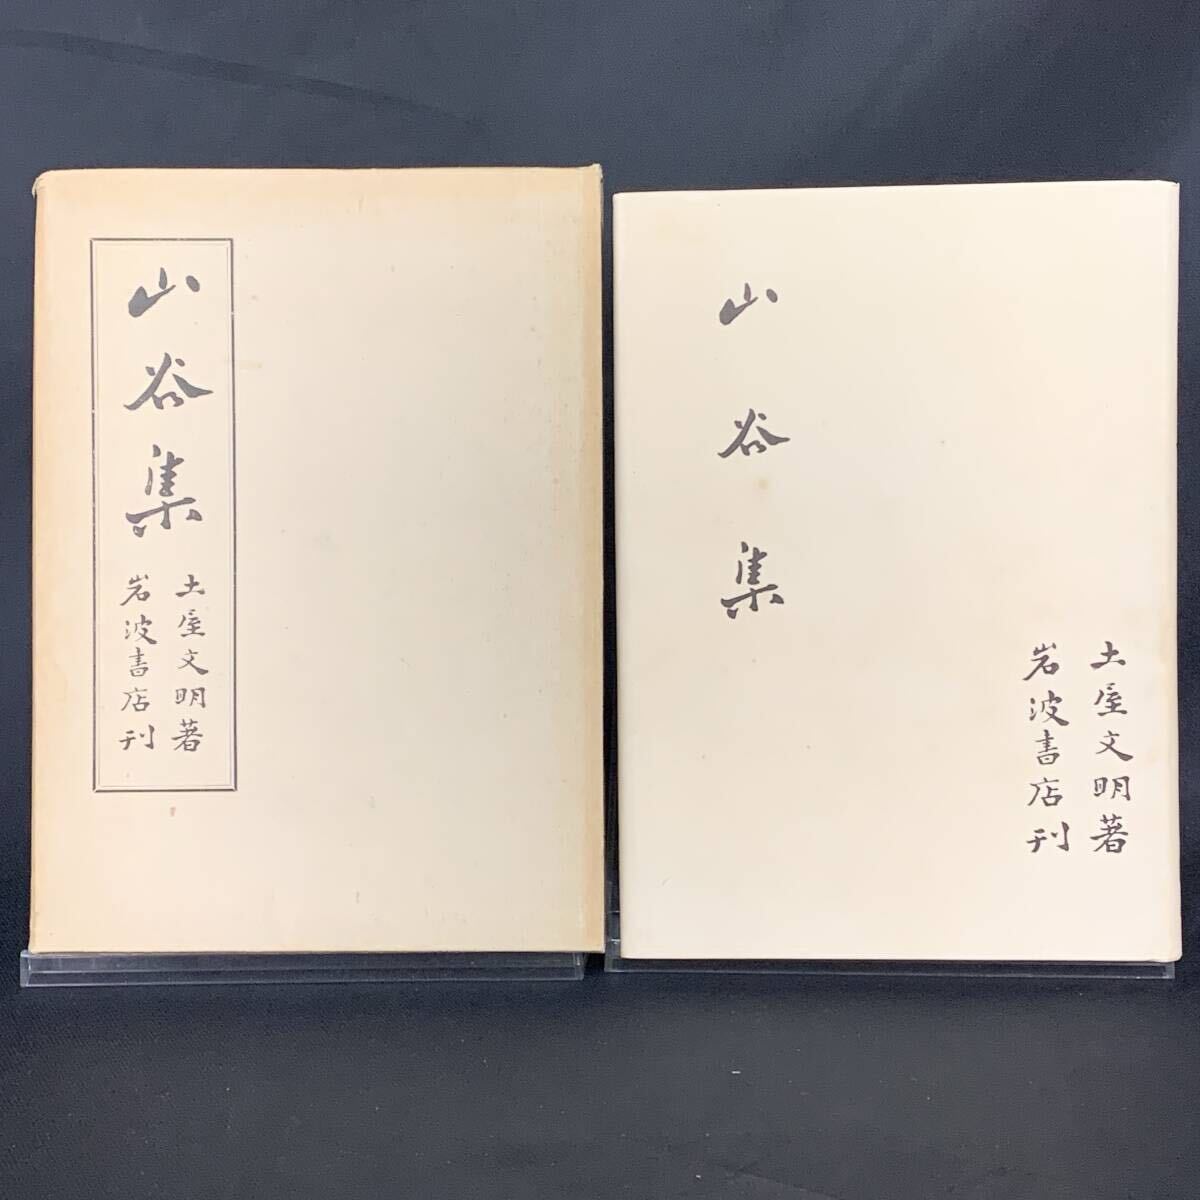 山谷集
土屋文明著
岩波書店刊
山谷集
土屋文明著
岩波書店刊